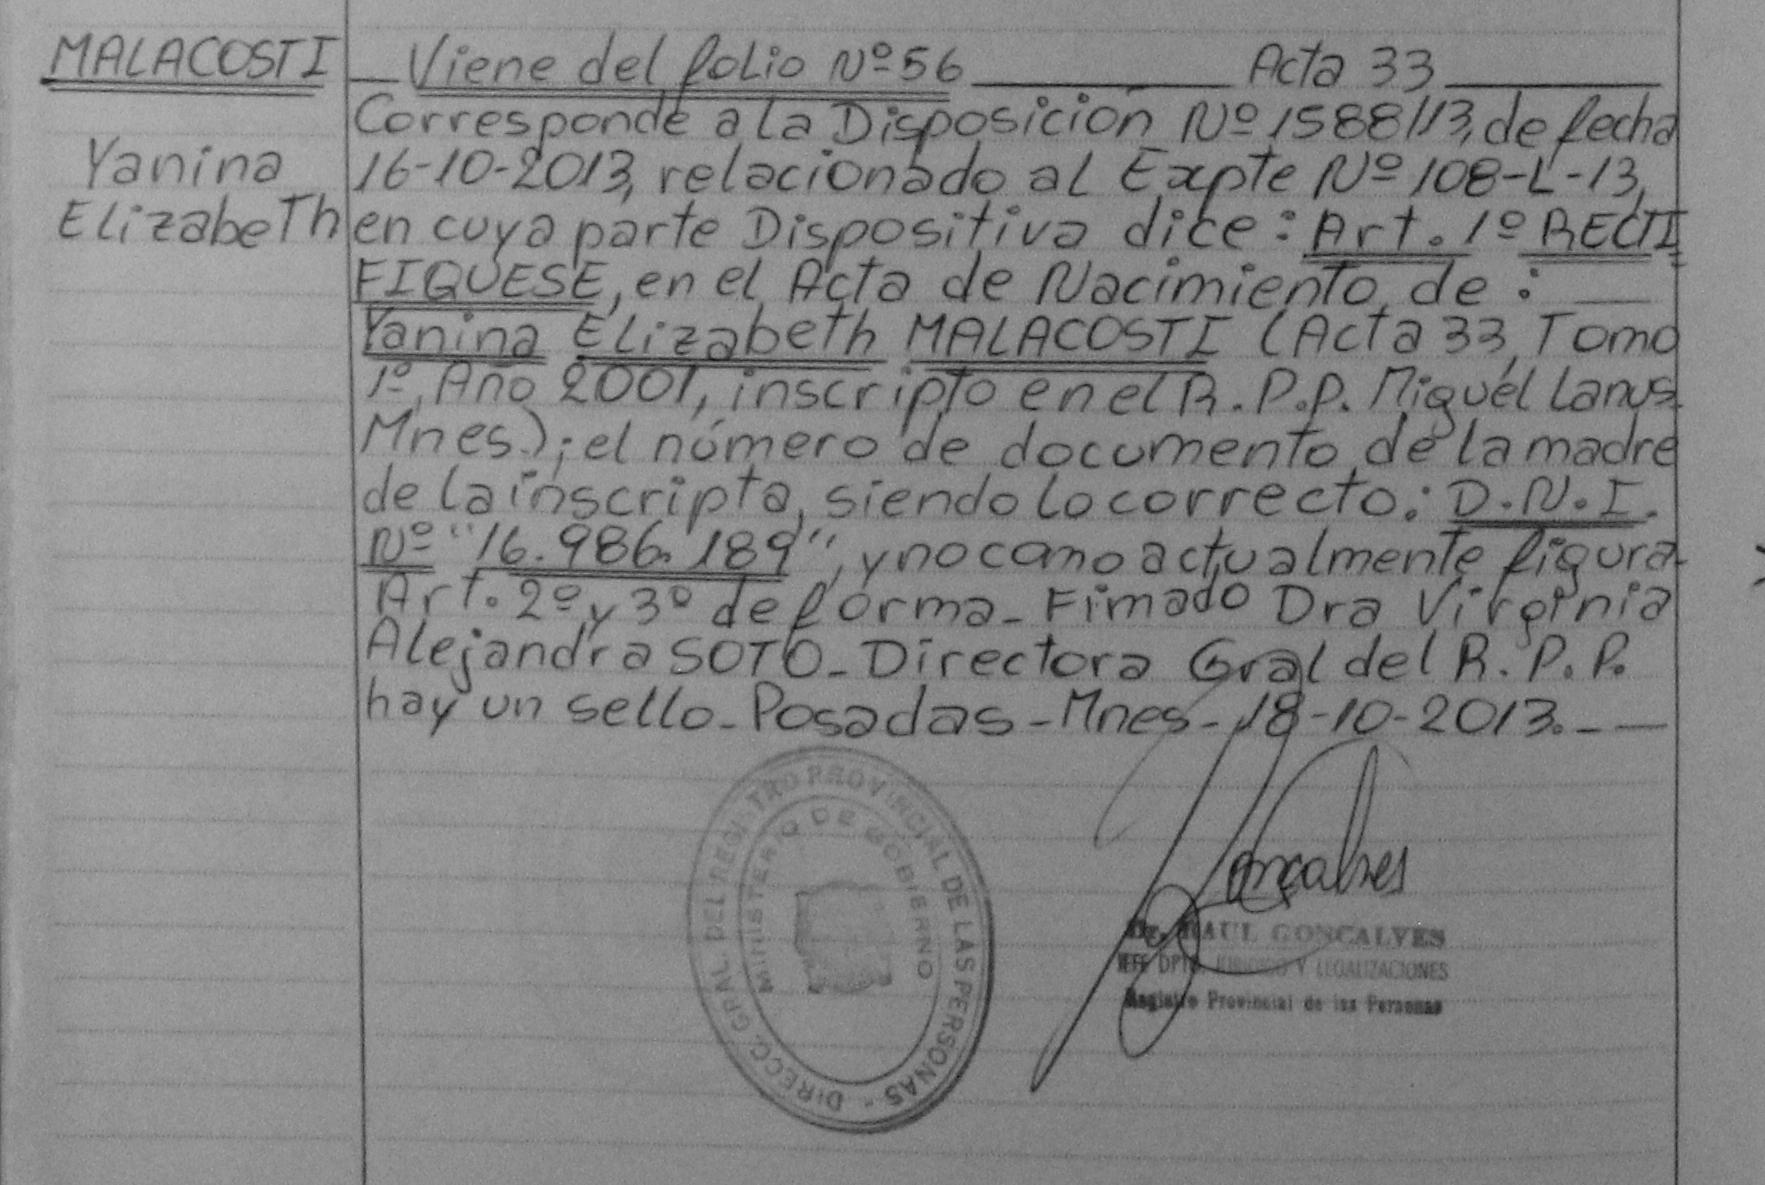 MALACOSTI
Yanina
Elizabeth
Viene del folio Nº 56 Acta 33
Corresponde a la Disposición Nº 1588/13, de fecha
16-10-2013, relacionado al Expte Nº 108-L-13,
en cuya parte Dispositiva dice: Art. 1º RECTI
FIQUESE, en el Acta de Nacimiento de:
Yanina Elizabeth MALACOSTI (Acta 33, Tomo
1º, Año 2001, inscripto en el R.P.P. Miguel Lanus
Mnes.); el número de documento de la madre
de la inscripta, siendo lo correcto: D.N.I.
Nº "16.986.189", y no como actualmente figura-
Art. 2º y 3º de forma_ Fimado Dra Virginia
Alejandra SOTO_ Directora Gral del R.P.P.
hay un sello_ Posadas_Mnes_18-10-2013._
DIRECC. GRAL. DEL REGISTRO PROVINCIAL DE LAS PERSONAS -
MINISTERIO DE GOBIERNO
Goncalves
Dr. RAUL GONCALVES
JEFE DPTO. JURIDICO Y LEGALIZACIONES
Registro Provincial de las Personas